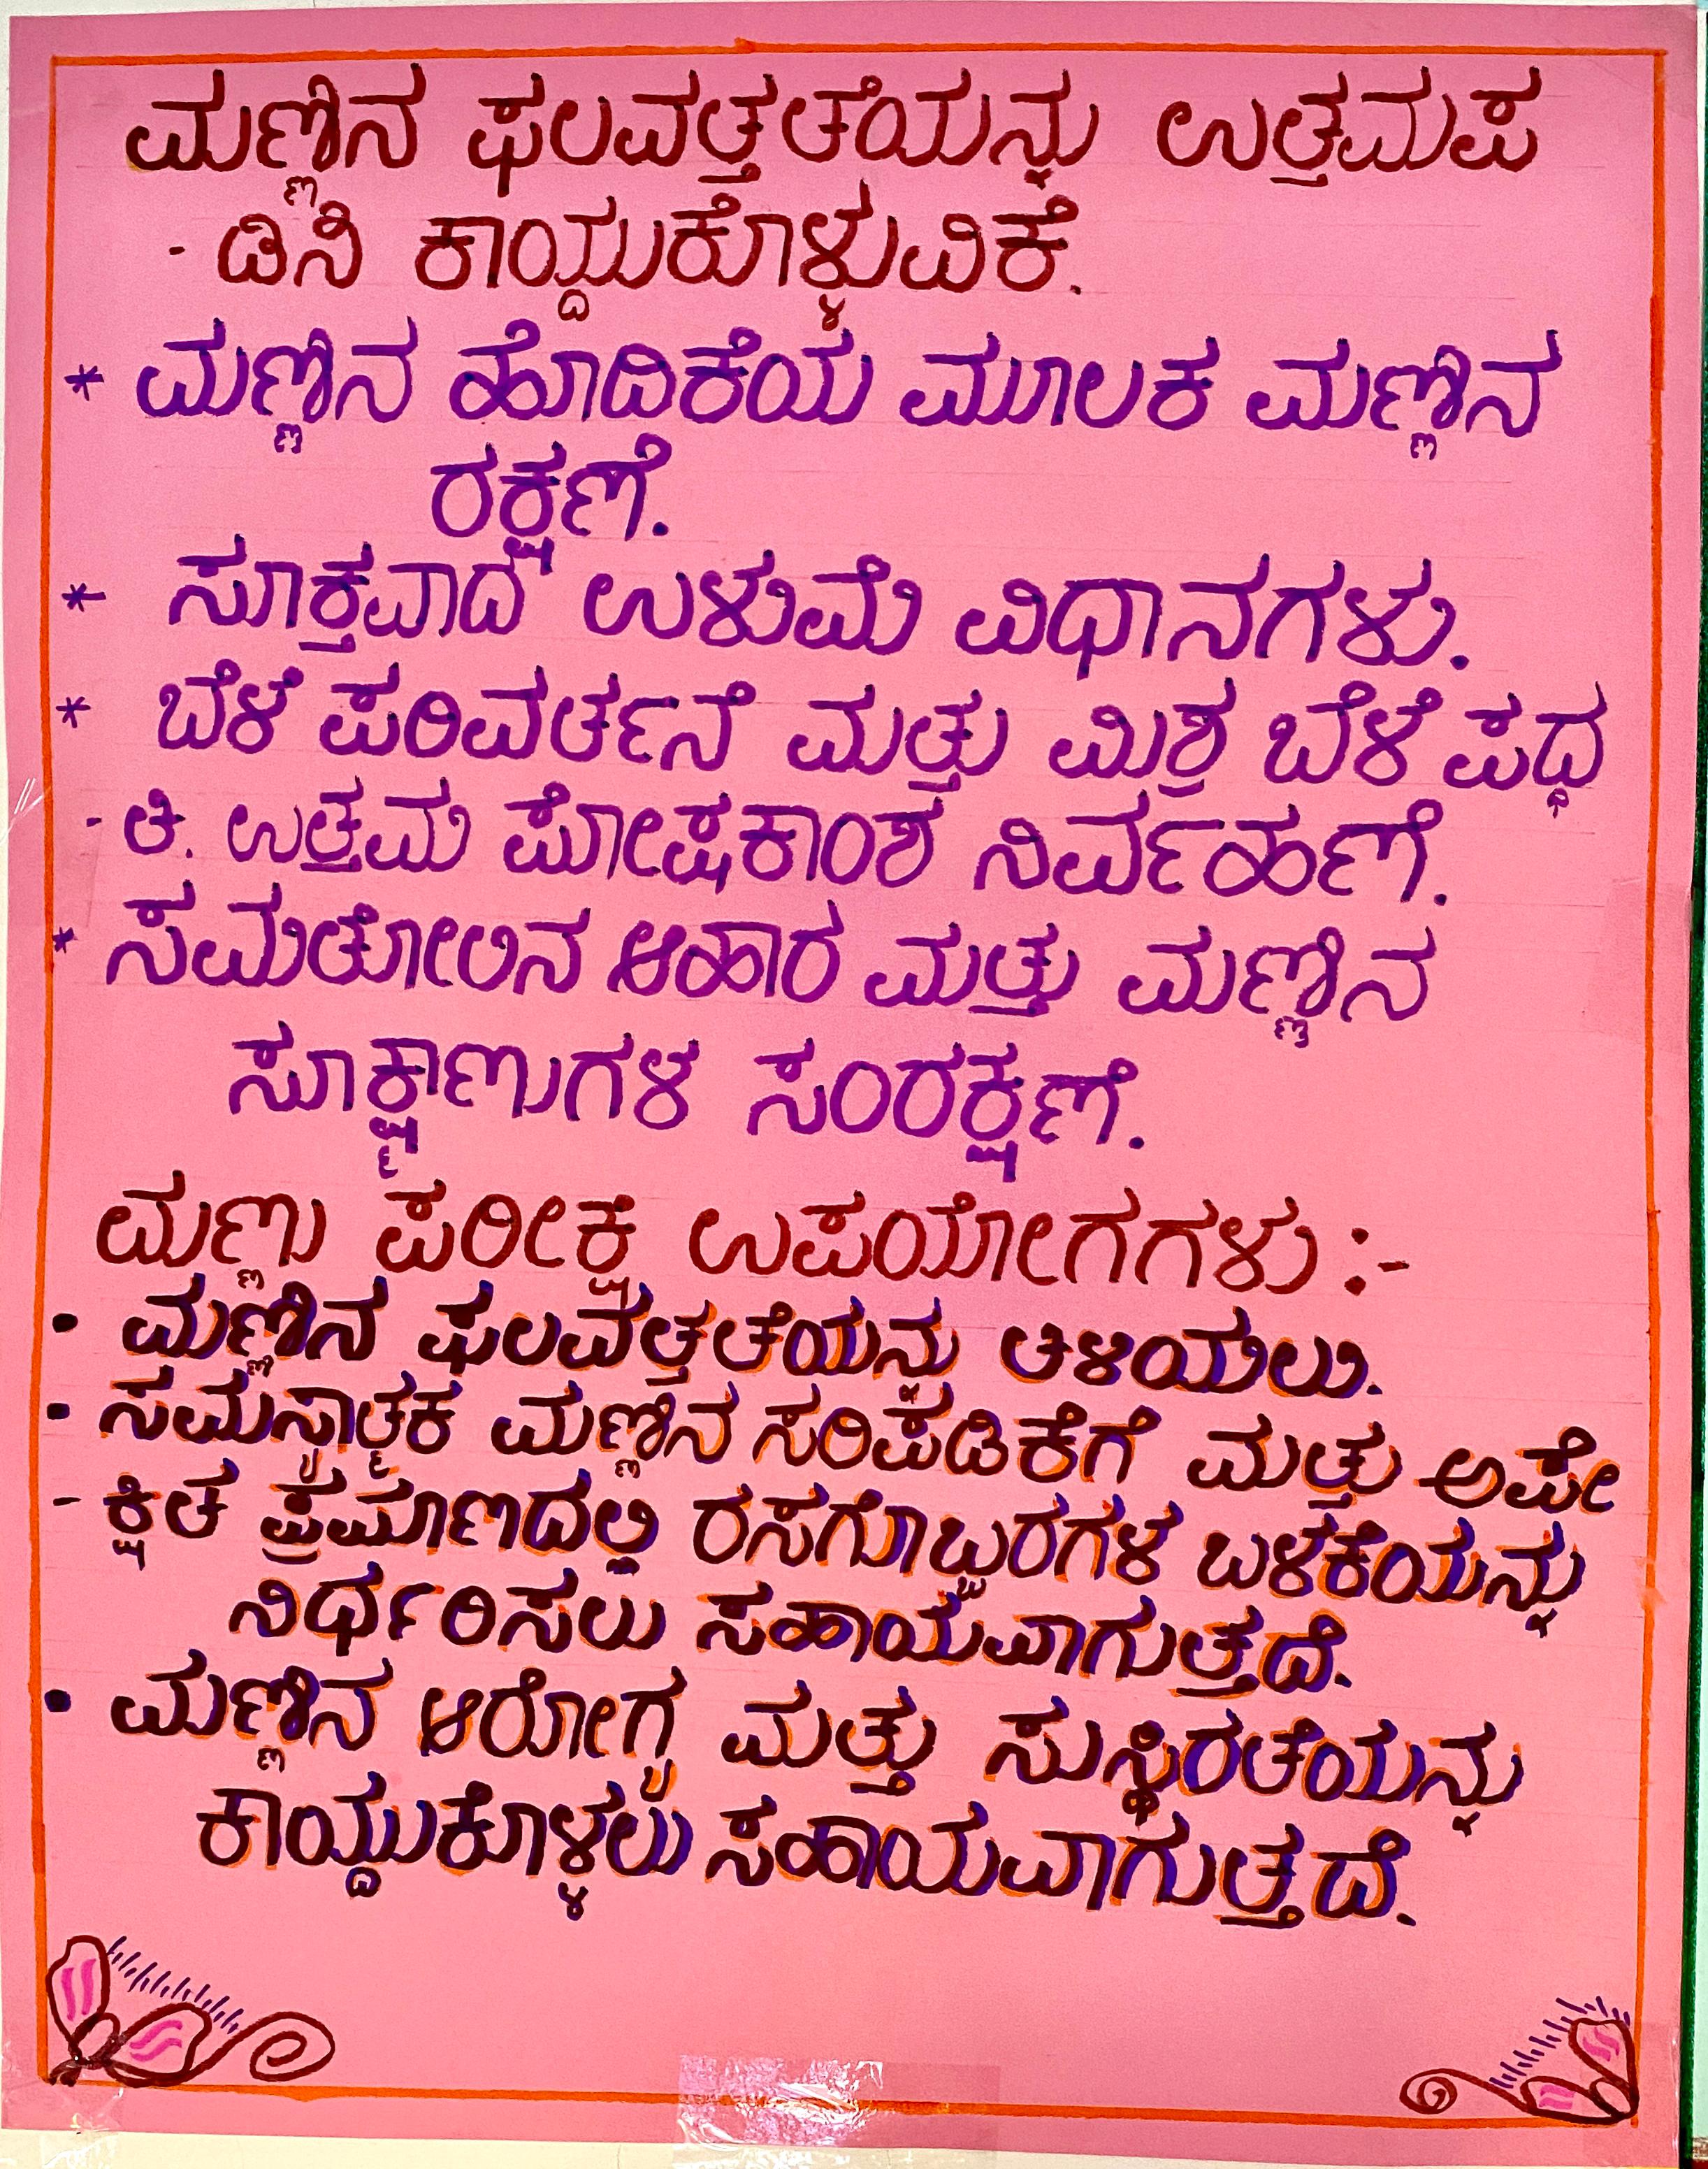 ಮಣ್ಣಿನ ಫಲವತ್ತತೆಯನ್ನು ಉತ್ತಮಪ
- ಡಿಸಿ ಕಾಯ್ದುಕೊಳ್ಳುವಿಕೆ.
* ಮಣ್ಣಿನ ಹೊದಿಕೆಯ ಮೂಲಕ ಮಣ್ಣಿನ
ರಕ್ಷಣೆ.
* ಸೂಕ್ತವಾದ ಉಳುಮೆ ವಿಧಾನಗಳು.
* ಬೆಳೆ ಪರಿವರ್ತನೆ ಮತ್ತು ಮಿಶ್ರ ಬೆಳೆ ಪಧ್ಧ
- ತಿ. ಉತ್ತಮ ಪೋಷಕಾಂಶ ನಿರ್ವಹಣೆ.
* ಸಮತೋಲಿನ ಆಹಾರ ಮತ್ತು ಮಣ್ಣಿನ
ಸೂಕ್ಷ್ಮಾಣುಗಳ ಸಂರಕ್ಷಣೆ.
ಮಣ್ಣು ಪರೀಕ್ಷೆ ಉಪಯೋಗಗಳು :-
• ಮಣ್ಣಿನ ಫಲವತ್ತತೆಯನ್ನು ತಿಳಿಯಲು.
• ಮಣ್ಣಿನ ಸರಿಪಡಿಕೆಗೆ ಮತ್ತು ಅಪೇ
- ಕ್ಷಿತ ಪ್ರಮಾಣದಲ್ಲಿ ರಸಗೊಬ್ಬರಗಳ ಬಳಕೆಯನ್ನು
ನಿರ್ಧರಿಸಲು ಸಹಾಯವಾಗುತ್ತದೆ.
• ಮಣ್ಣಿನ ಆರೋಗ್ಯ ಮತ್ತು ಸುಸ್ಥಿರತೆಯನ್ನು
ಕಾಯ್ದುಕೊಳ್ಳಲು ಸಹಾಯವಾಗುತ್ತದೆ.